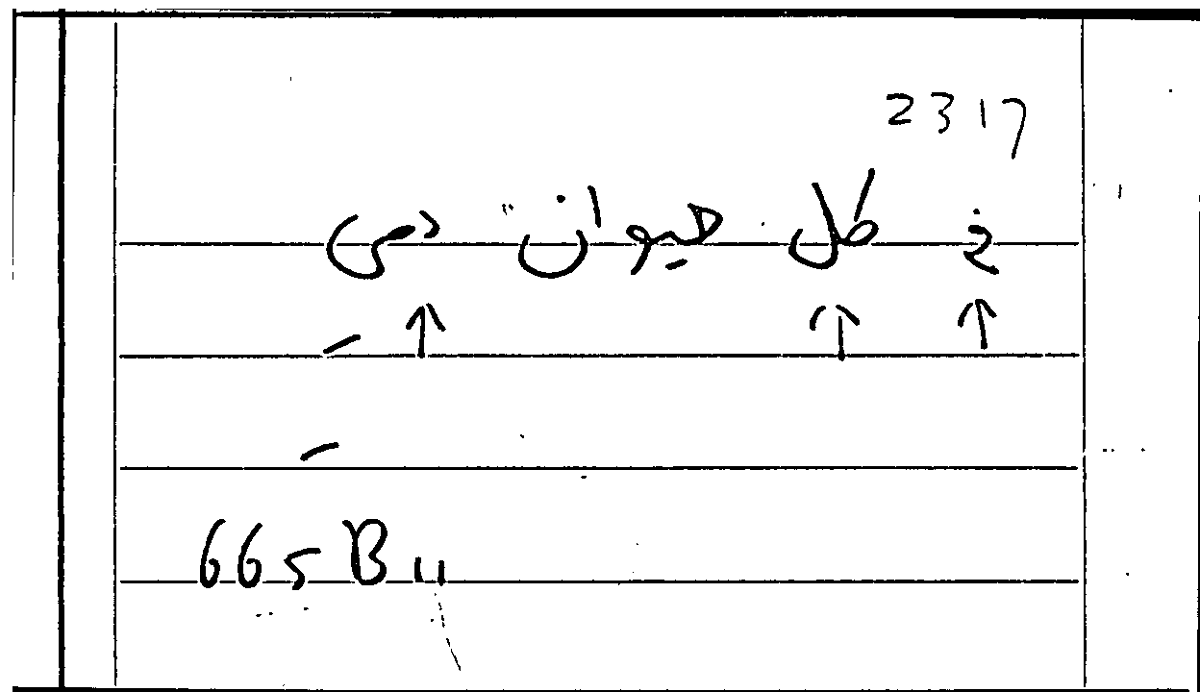 2317
خ كل هيوان دمى
↑ ↑ ↑
665 B11